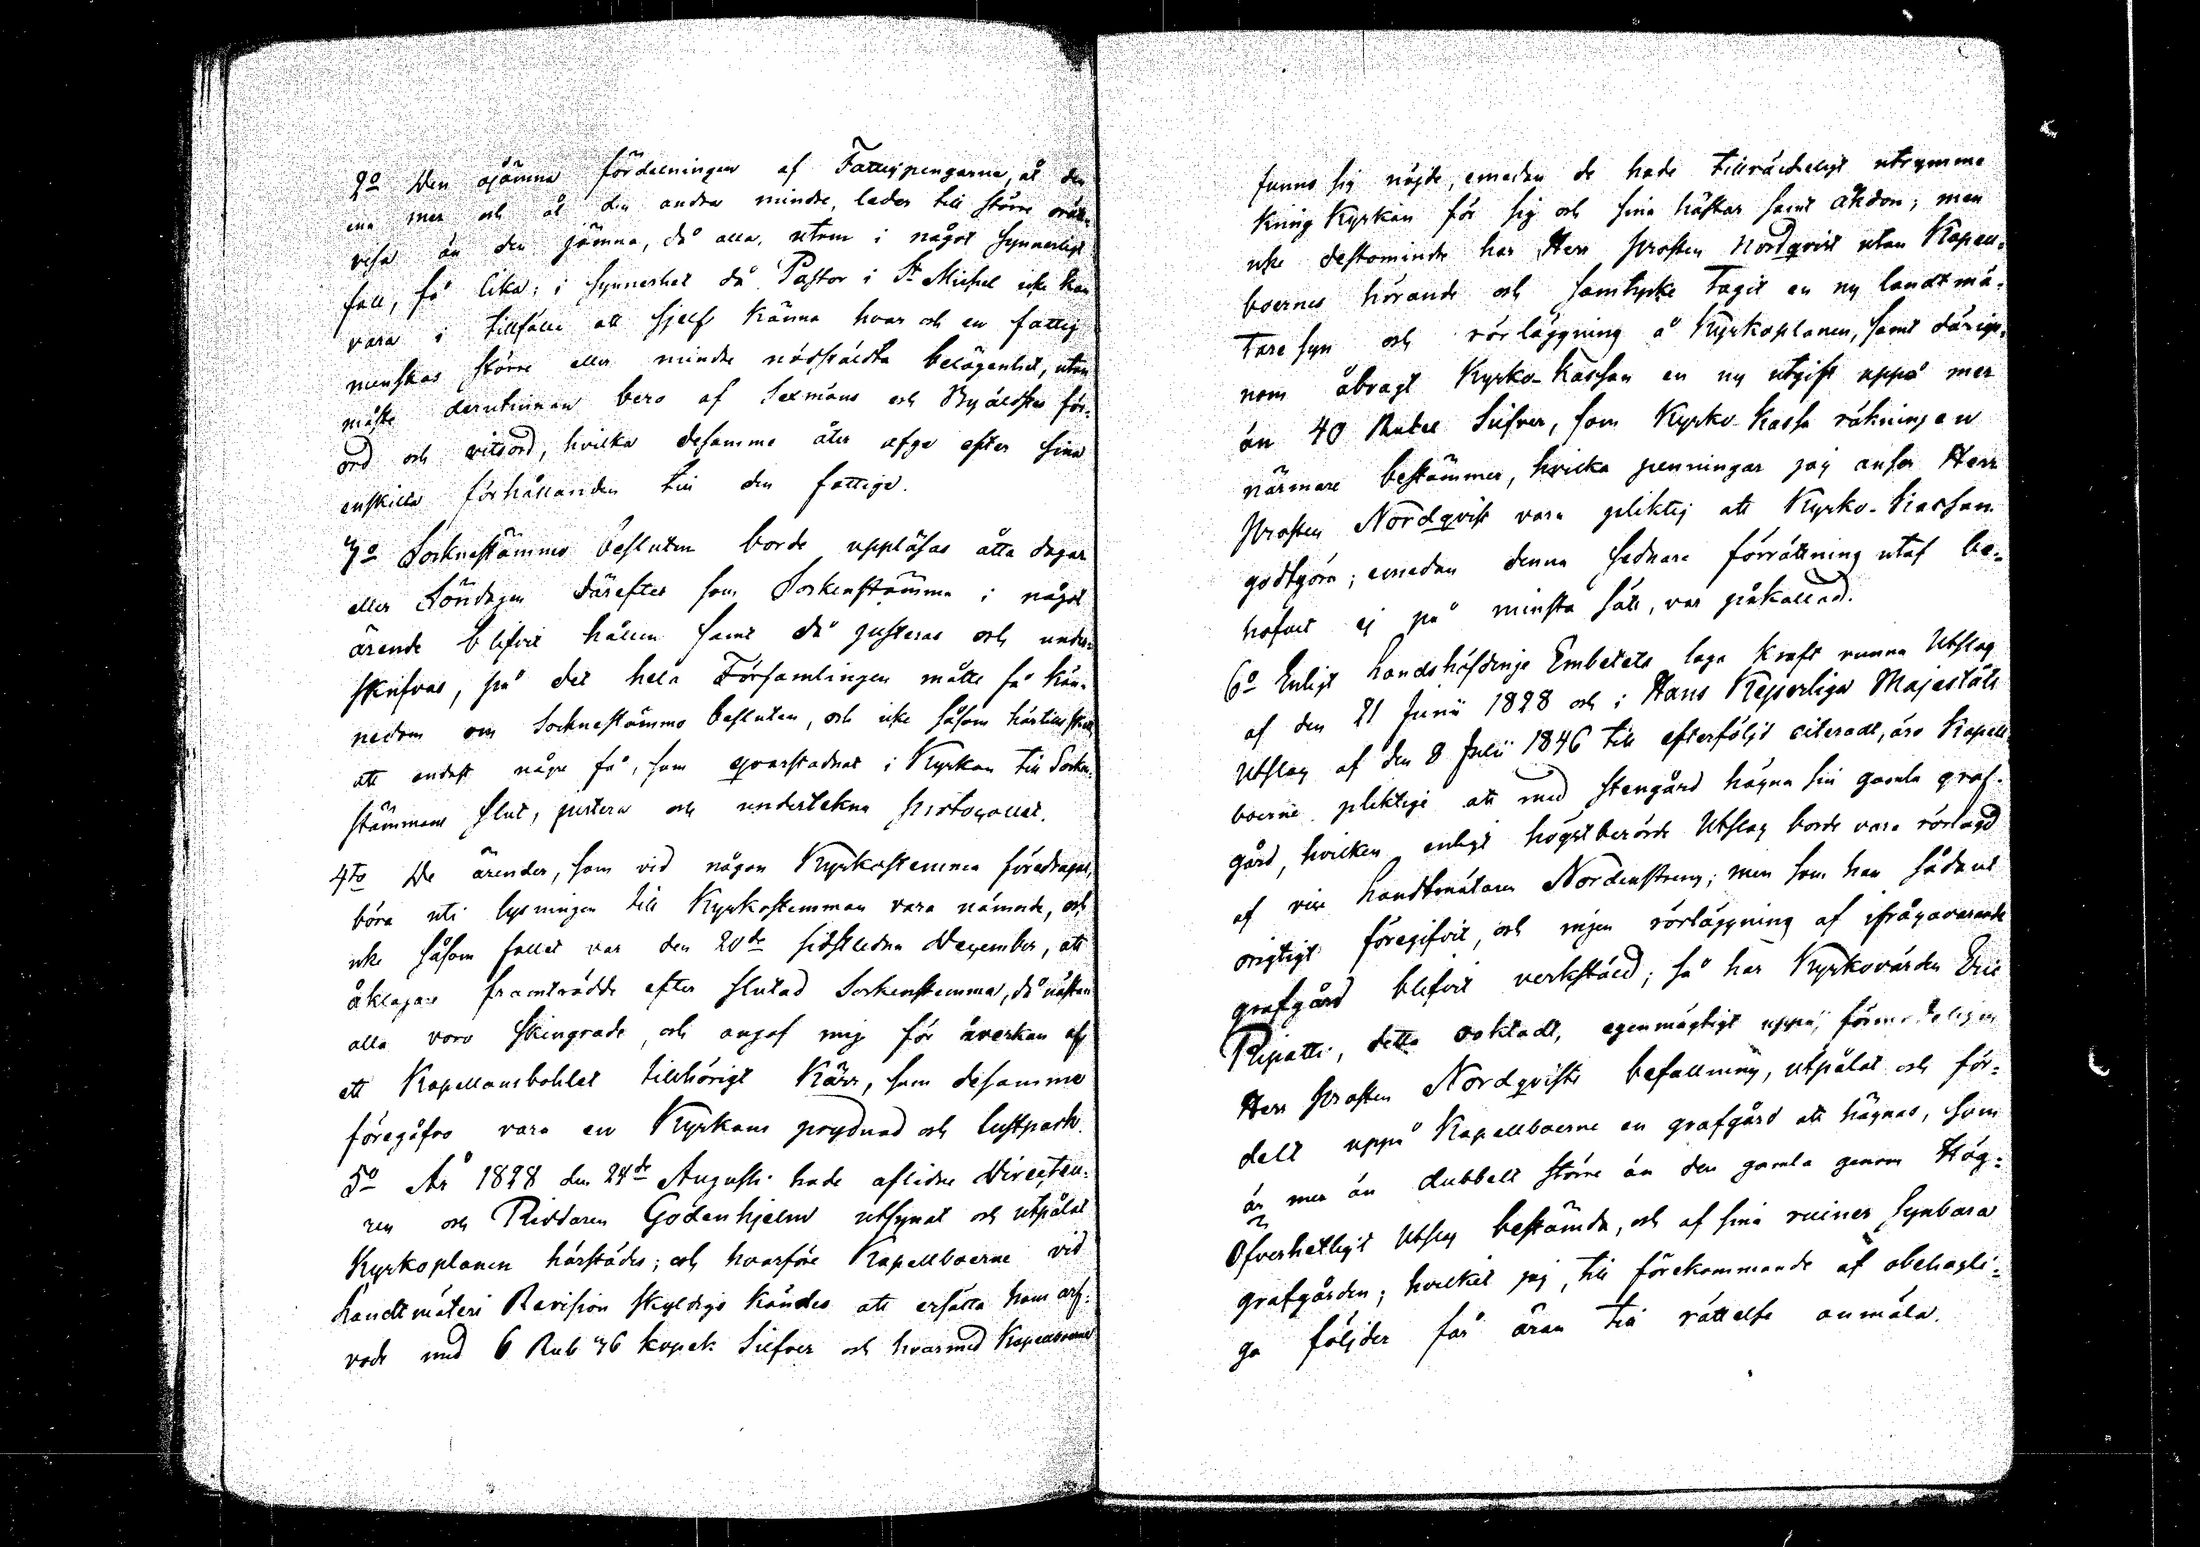 2o Den ojämna fördelningen af Fattigpengarne, åt den
ena mer och åt den andra mindre, leder till större orätt
visa än den jämna, då alla, utom i något synnerligt
fall, få lika; i synnerhet då Pastor i St Michel icke kan
vara i tillfälle att sjelf känna hvar och en fattig
menskas större eller mindre nödstäldta belägenhet, utan
måste derutinnan bero af Sexmäns och Byäldstes för-
ord och vitsord, hvilka desamme åter afge efter sina
enskilta förhållanden till den fattige.
3o Socknestämmo besluten borde uppläsas åtta dagar
eller Söndagen därefter som Sockenstämma i något
ärende blifvit hållen samt då justeras och under-
skrifvas, på det hela Församlingen måtte få kän-
nedom om Socknestämmo besluten, och icke såsom härtills skett
att endast några få, som qvarstadnat i Kyrkan till Socken-
stämmans slut, justera och underteckna protocollet.
4to De ärender, som vid någon Kyrkostemma föredragas,
böra uti lysningen till Kyrkostemman vara nämnde, och
icke såsom fallet var den 20de sidstledne December, att
åklagare framträdde efter slutad Sockenstemma, då nästan
alla voro skingrade, och angaf mig för åverkan af
ett Kapellansbohlet tillhörigt Kärr, som desamme
föregåfvo vara en Kyrkans prydnad och lustpark.
5o År 1828 den 24de Augusti hade aflidne Directeu-
ren och Riddaren Godenhjelm utsynat och utpålat
Kyrkoplanen härstädes; och hvarföre Kapellboerne vid
Landtmäteri Revision skyldige kändes att ersätta hans arf-
vode med 6 Rub 76 kopek Silfver och hvarmed Kapellboerne
funno sig nöjde, emedan de hade tillräckeligt utrymme
kring Kyrkan för sig och sina hästar samt åkdon; men
icke destomindre har Herr Prosten Nordqvist utan Kapell-
boernes hörande och samtycke tagit en ny landtmä-
tare syn och rörläggning å Kyrkoplanen, samt därige-
nom åbragt Kyrko-Kassan en ny utgift uppå mer
än 40 Rubel Silfver, som Kyrko-Kassa räkningen
närmare bestämmer, hvilka penningar jag anser Herr
Prosten Nordqvist vara pliktig att Kyrko-Kassan
godtgöra; emedan denna sednare förrättning utaf be-
hofvet ej på minsta sätt, var påkallad.
6o Enligt Landshöfdinge Embetets laga kraft vunna Utslag
af den 21 Junii 1828 och i Hans Kejserliga Majestäts
Utslag af den 8 Julii 1846 till efterföljd citeradt, äro Kapell-
boerne pliktige att med stengård hägna sin gamla graf-
gård, hvilken enligt högstberörde Utslag borde vara rörlagd
af vice Landtmätaren Nordenstreng; men som han sådant
origtigt föregifvit, och ingen rörläggning af ifrågavarande
grafgård blifvit verkstäld; så har Kyrkovärden Eric
Ripatti, detta oaktadt, egenmägtigt uppå, förmodeligen
Herr Prosten Nordqvists befallning, utpålat och för-
delt uppå Kapellboerne en grafgård att hägnas, som
är mer än dubbelt större än den gamla genom Hög-
Öfverhetligt Utslag bestämda, och af sina ruiner synbara
grafgården; hvilket jag, till förekommande af obehagli-
ga följder får äran till rättelse anmäla.